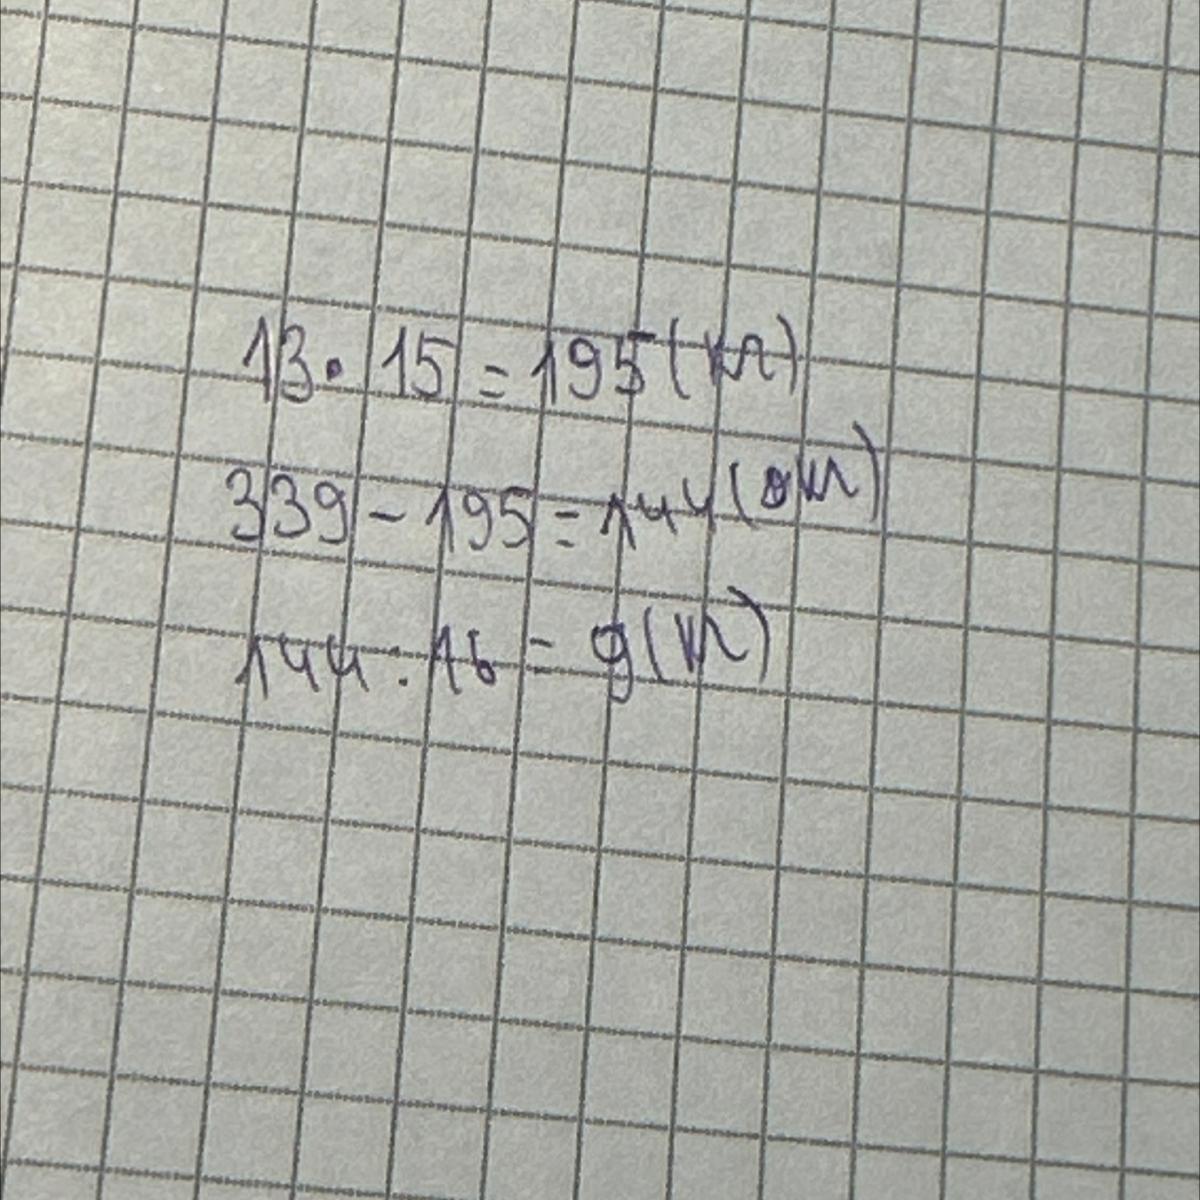 13 · 15 = 195 (кг)
339 - 195 = 144 (кг)
144 : 16 = 9 (кг)